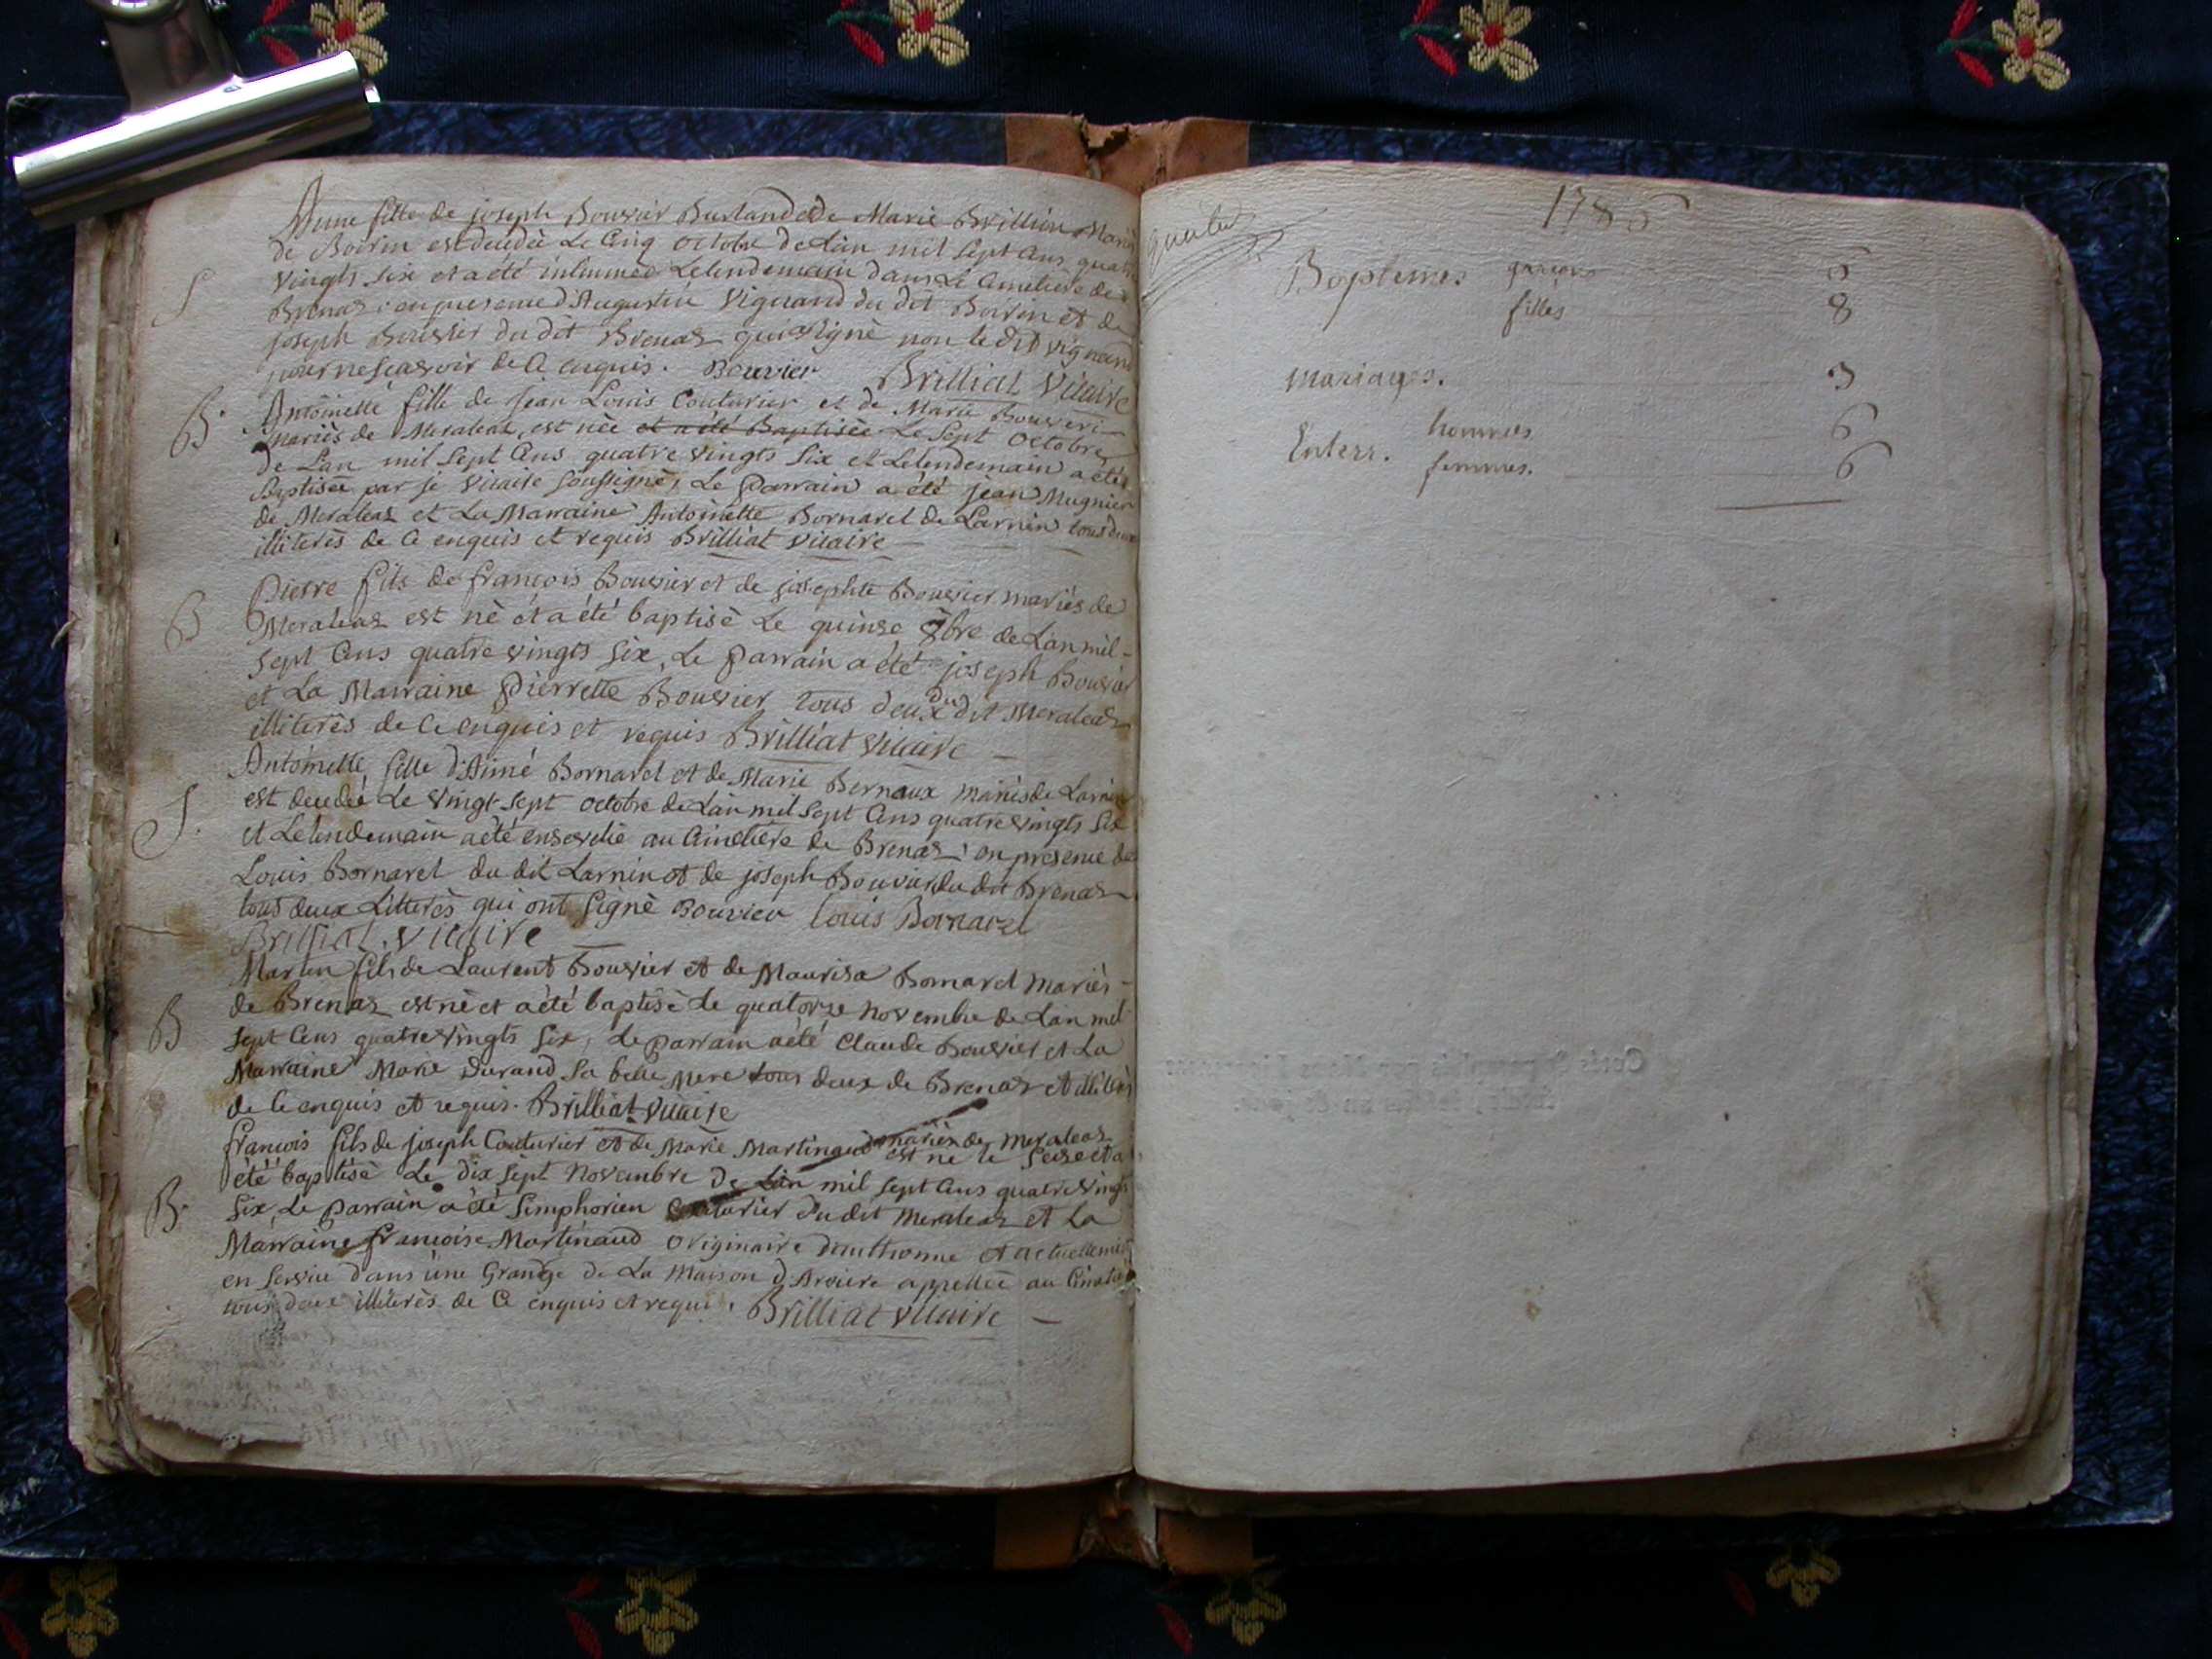 Anne fille de joseph Bouvier Burland et de Marie Brillion Mariés
de Boirin est decedée Le Cinq octobre de L'an mil sept Cens quatre
vingts six et a été inhumée Le lendemain dans Le Cimetiere de
Brenaz : en presence d'Augustin Vignand du dit Boirin et de
joseph Bouvier du dit Brenaz qui a signè non le dit vignand
pour ne scavoir de Ce enquis. Bouvier Brilliat Vicaire
S
B. Antoinette fille de jean Louis Couturier et de Marie Bouvier
mariès de Meraleaz, est nèe et a été Baptisèe Le Sept Octobre
de L'an mil Sept Cens quatre vingts Six et Le lendemain a étè
Baptisèe par je Vicaire soussignè, Le Parrain a été jean Mugnier
de Meraleaz et La Marraine Antoinette Bornarel de Larnin tous deux
illiterès de Ce enquis et requis Brilliat Vicaire
B Pierre fils de françois Bouvier et de josephte Bouvier mariés de
Meraleaz est nè et a été baptisè Le quinse 8bre de L'an mil
Sept Cens quatre vingts Six, Le Parrain a été joseph Bouvier
et La Marraine Pierrette Bouvier tous deux du dit Meraleaz
illiterès de Ce enquis et requis Brilliat Vicaire
Antoinette fille d'Aimé Bornarel et de Marie Bernaux mariès de Larnin
est decedée Le vingt sept octobre de L'an mil sept Cens quatre vingts Six
S. et Le lendemain a été ensevelie au Cimetière de Brenaz ; en presence de
Louis Bornarel du dit Larnin et de joseph Bouvier du dit Brenaz
tous deux Litterès qui ont Signè Bouvier Louis Bornarel
Brilliat Vicaire
Martin fils de Laurent Bouvier et de Maurisa Bornarel Mariès
de Brenaz est nè et a été baptisè Le quatorze novembre de L'an mil
B Sept Cens quatre vingts Six, Le parrain a été Claude Bouvier et La
Marraine Marie Durand Sa belle Mere tous deux de Brenaz et illiterès
de Ce enquis et requis. Brilliat Vicaire
françois fils de joseph Couturier et de Marie Martinaud mariès de Meraleaz
est né le Seize et a
été baptisè Le dix sept Novembre De L'an mil sept Cens quatre vingts
B. Six, Le parrain a été Simphorien Couturier du dit Meraleaz et La
Marraine françoise Martinaud originaire d'outhonne et actuellement
en Service dans une Grange de La Maison d'Arviere appellèe au Cimetiere
tous deux illiterès de Ce enquis et requi. Brilliat Vicaire
1786
Baptemes. garçons 5
filles 8
mariages. 3
Enterr. hommes 6
femmes. 6